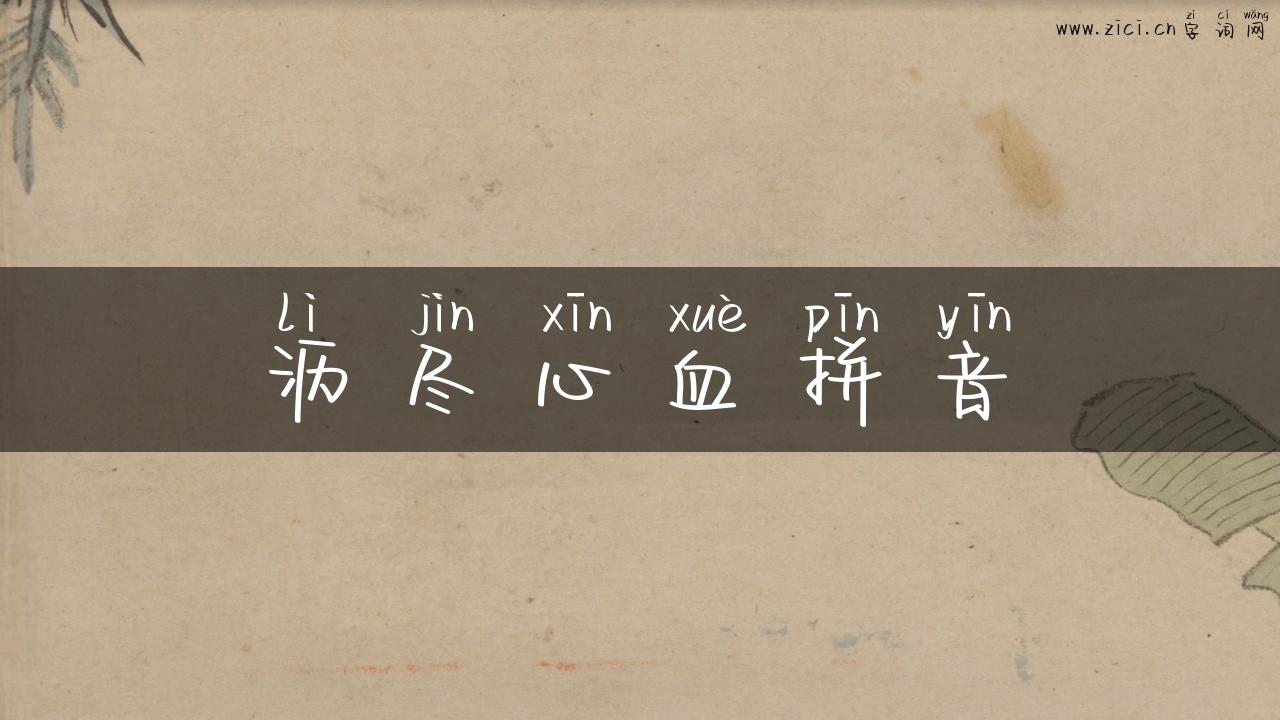 zì cí wǎng
www.zici.cn 字 词 网
lì jìn xīn xuè pīn yīn
沥 尽 心 血 拼 音